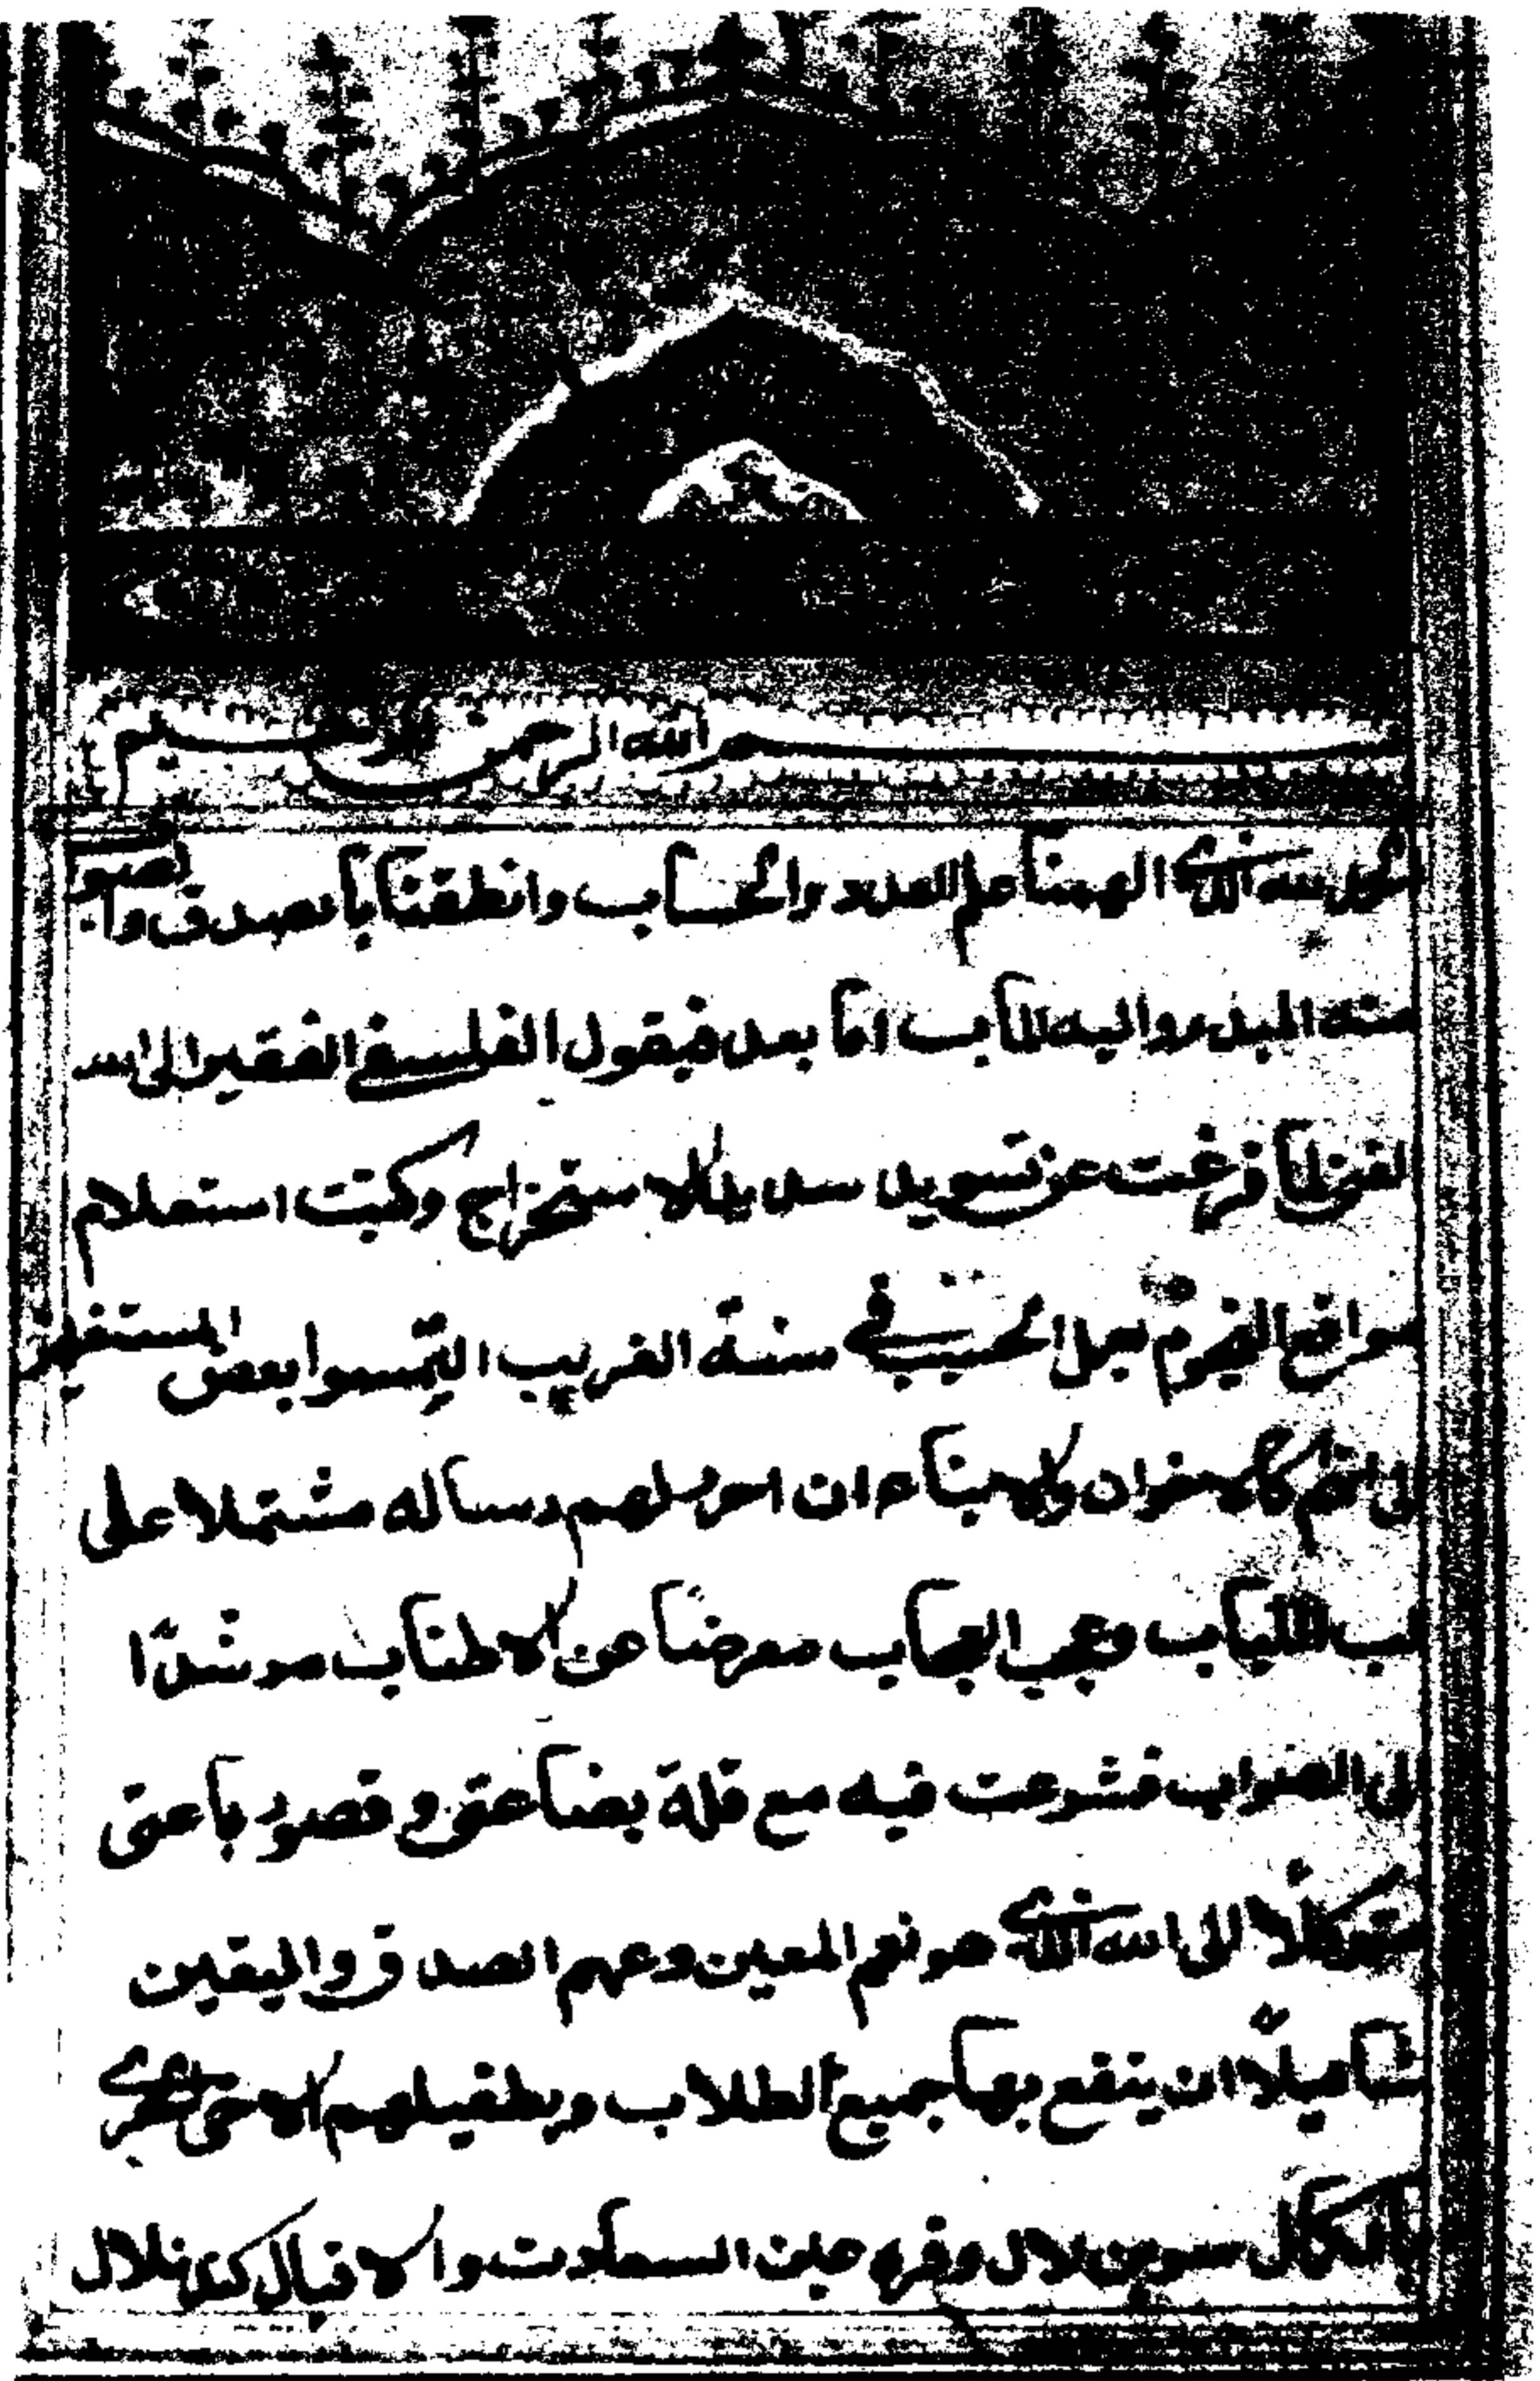 بسم الله الرحمن الرحيم
الحمد لله الذي الهمنا علم العدد والحساب وانطقنا بالصدق والصوا
منه المبدء واليه المآب اما بعد فيقول الفلسفي الفقير الى الله
الغنى لما فرغت عن تسويد سديد الاستخراج وكتبت استعلام
مواقع النجوم بعمل الجيب في سنة الغريب التمسوا بعض المستفيد
الى الاخوان والاحباء ان احرر لهم رساله مشتملا على
لب اللباب وعجب العجاب معرضا عن الاطناب مرشدًا
الى الصواب فشرعت فيه مع قلة بضاعتى وقصور باعتى
متوكلًا الى الله الذي هو نعم المعين وعهم الصدق واليقين
تأميلًا ان ينفع بها جميع الطلاب وبطفيلهم الاحرى
بالكمال بلال وقره عين السعادت والاقبال بلال